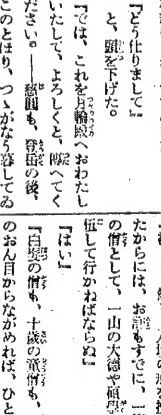 『どう仕りまして』
と、頭を下げた。
『では、これを月輪殿へおわたし
いたして、よろしくと、傳へてく
ださい。――慈圓も、登岳の後、
このとほり、つゝがなう暮してゐ
たからには、お
の僧として、一山の大德や碩學
伍して行かねばならぬ』
『はい』
『白髮の僧も、十歲の童僧も、
のおん目からながめれば、ひと